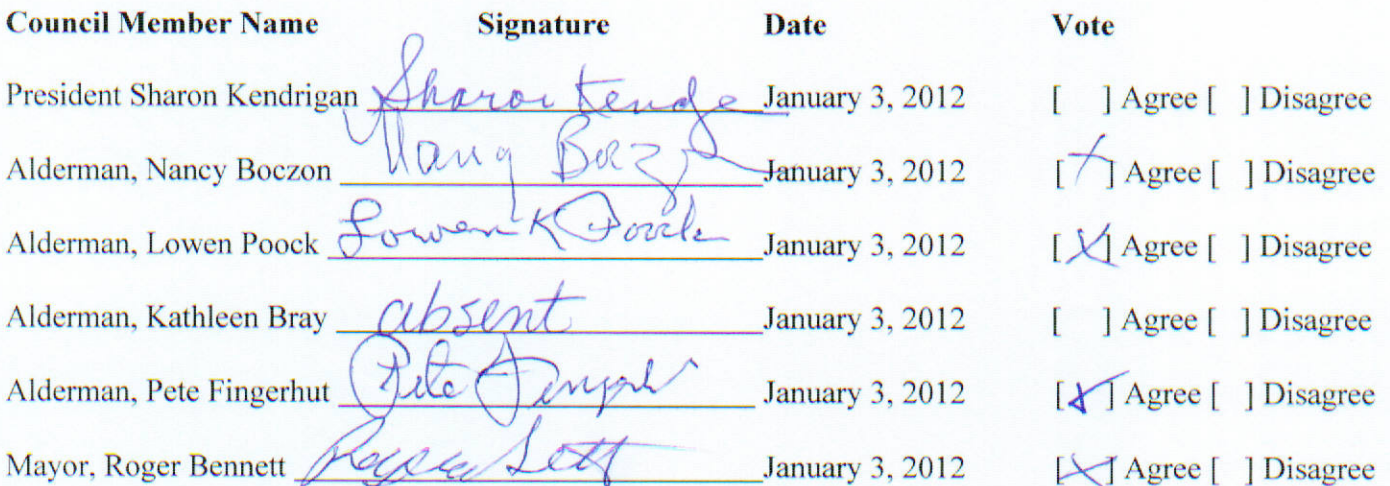 Council Member Name Signature Date Vote
President Sharon Kendrigan Sharon Kendge January 3, 2012 [ ] Agree [ ] Disagree
Alderman, Nancy Boczon Nancy Bocz January 3, 2012 [X] Agree [ ] Disagree
Alderman, Lowen Poock Lowen K Poock January 3, 2012 [X] Agree [ ] Disagree
Alderman, Kathleen Bray absent January 3, 2012 [ ] Agree [ ] Disagree
Alderman, Pete Fingerhut Pete January 3, 2012 [X] Agree [ ] Disagree
Mayor, Roger Bennett Roger January 3, 2012 [X] Agree [ ] Disagree